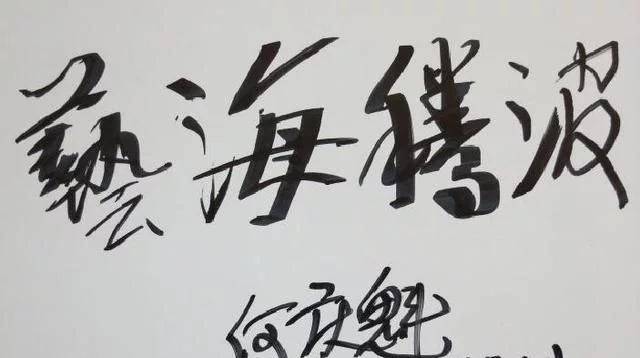 藝海騰波
何庆魁